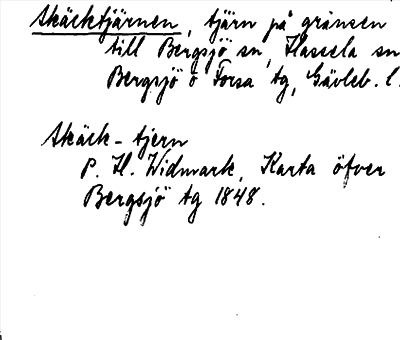 Skäcktjärnen, tjärn på gränsen
till Bergsjö sn, Hassela sn
Bergsjö o Forsa tg, Gävleb. l.
Skäck-tjern
P. H. Widmark, Karta öfver
Bergsjö tg 1848.